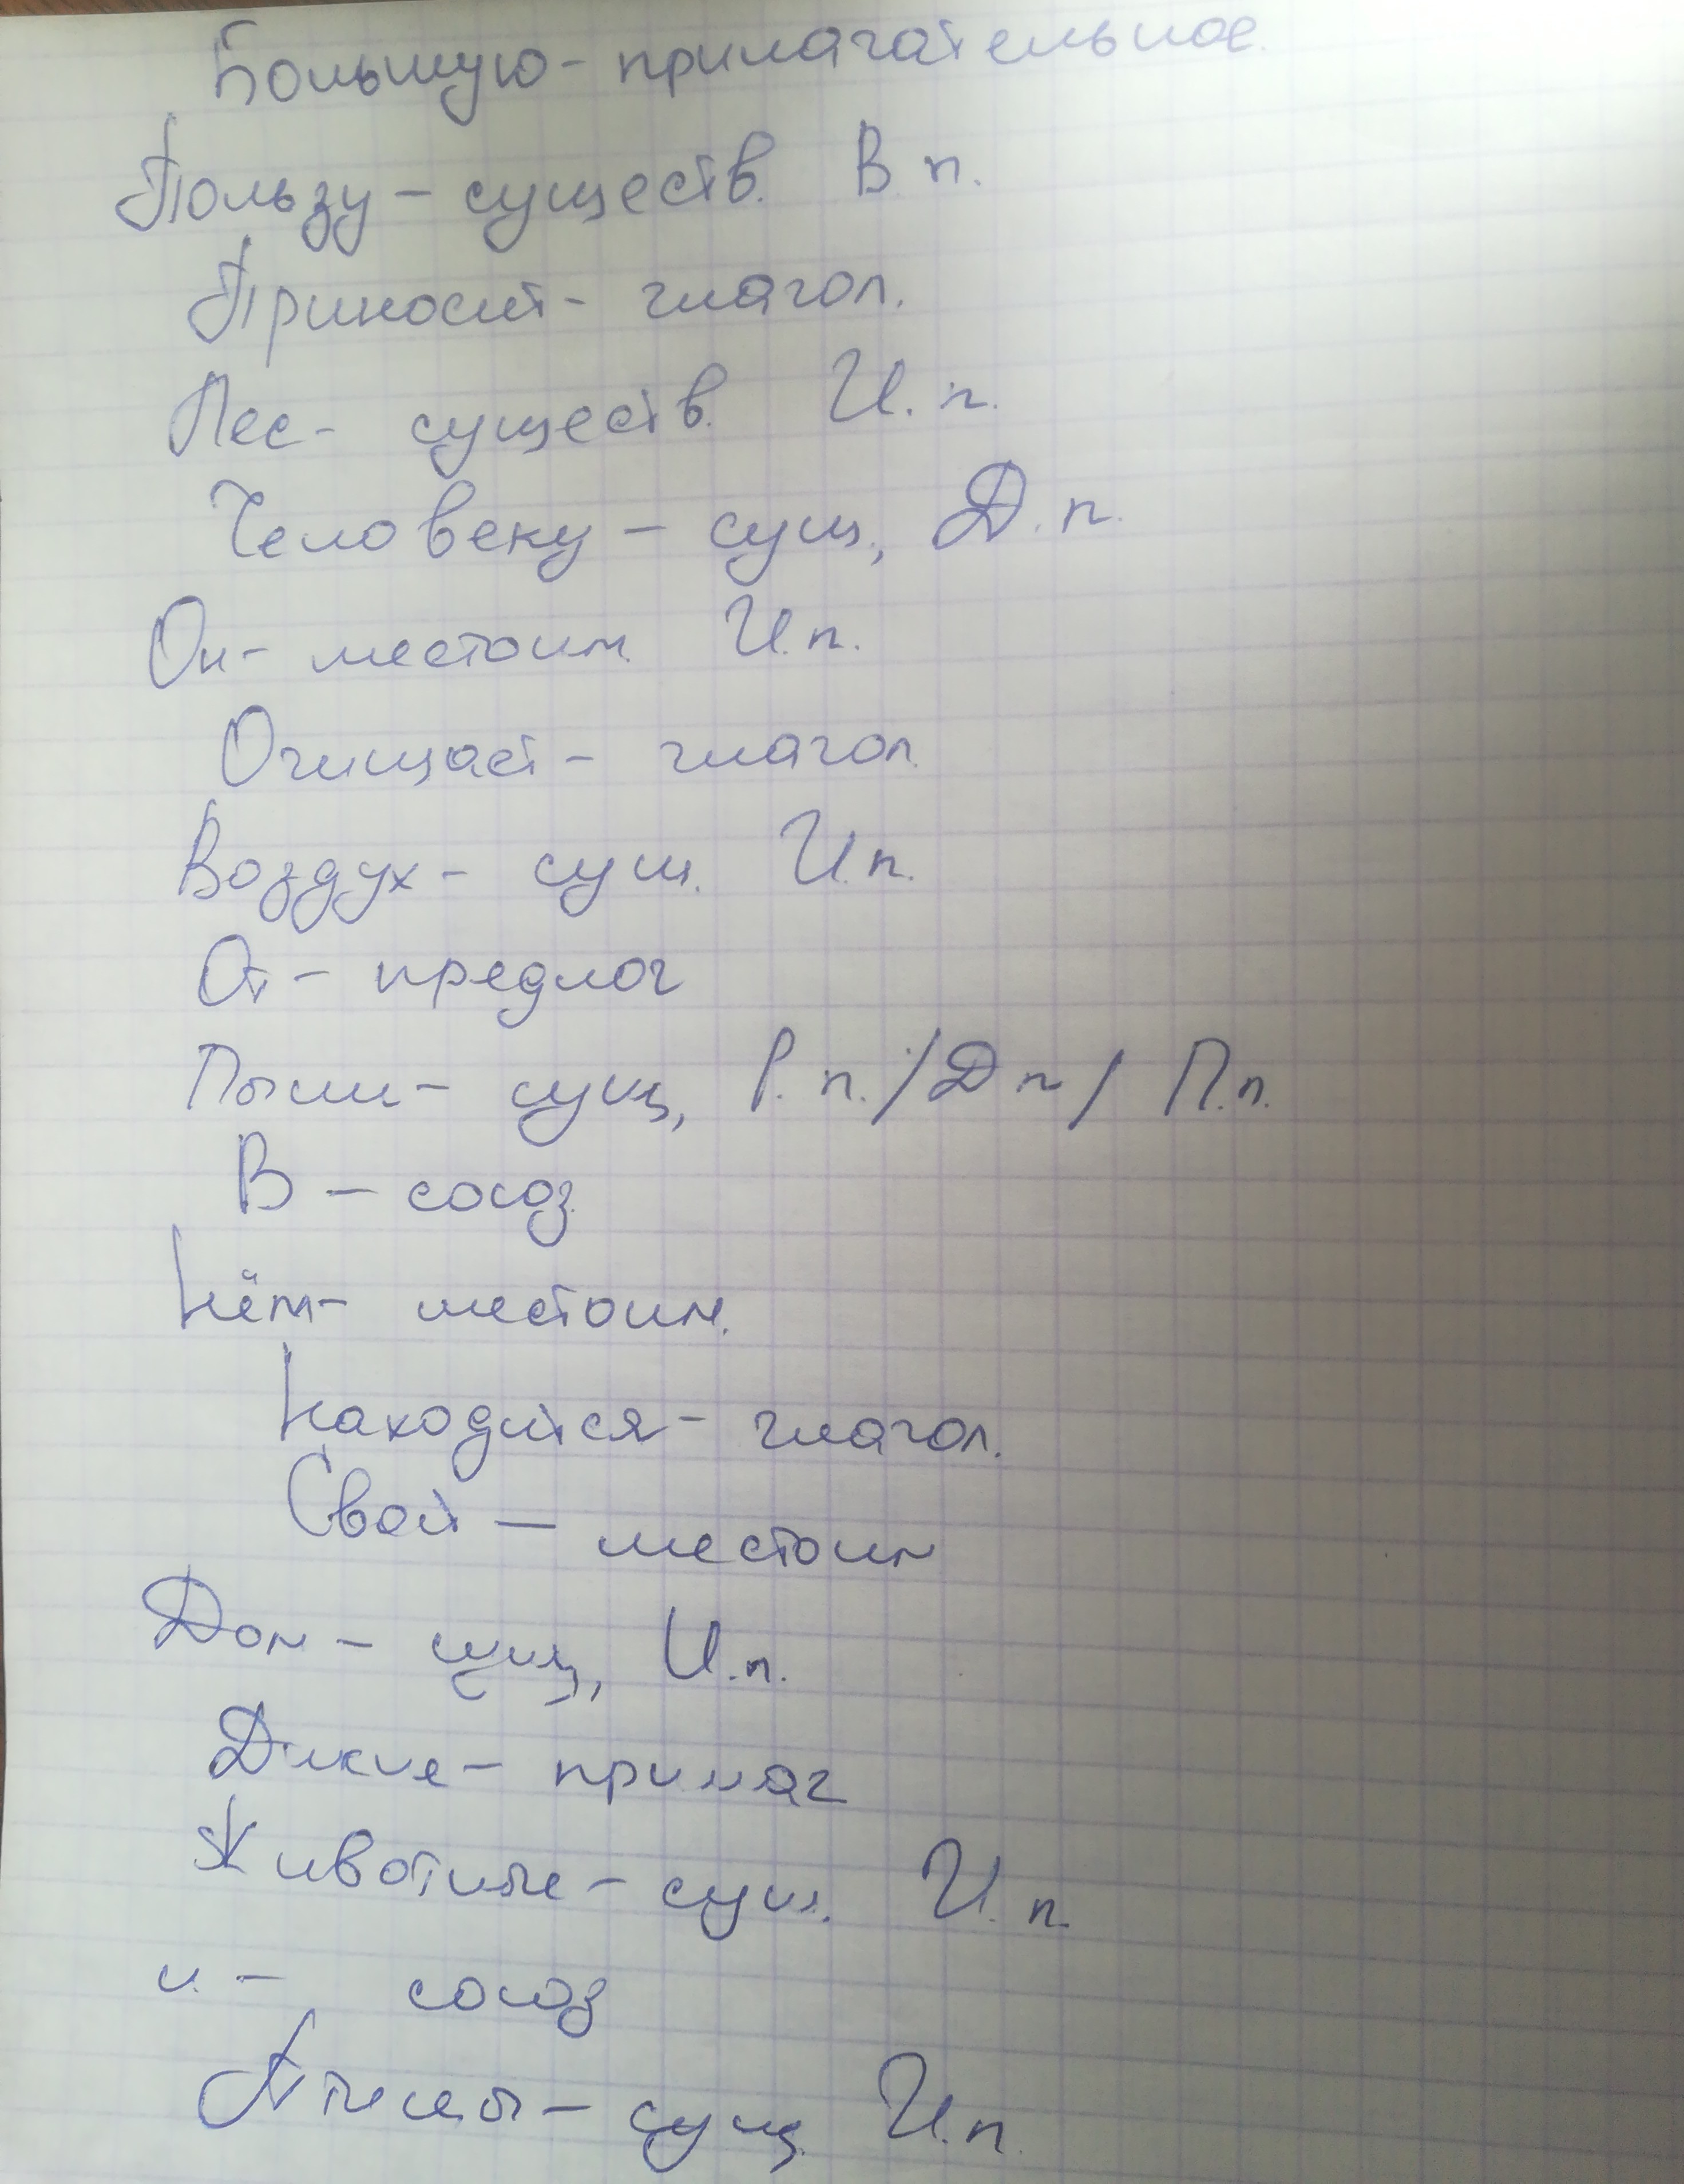 Большую - прилагательное.
Пользу - существ. В п.
Приносит - глагол.
Лес - существ. И. п.
Человеку - сущ, Д. п.
Он - местоим. И. п.
Очищает - глагол.
Воздух - сущ. И. п.
От - предлог
Пыли - сущ, Р. п. / Д п / П. п.
В - союз.
Нём - местоим.
Находится - глагол.
Свой - местоим
Дом - сущ, И. п.
Дикие - прилаг
Животные - сущ. И. п.
и - союз
Птицы - сущ. И. п.